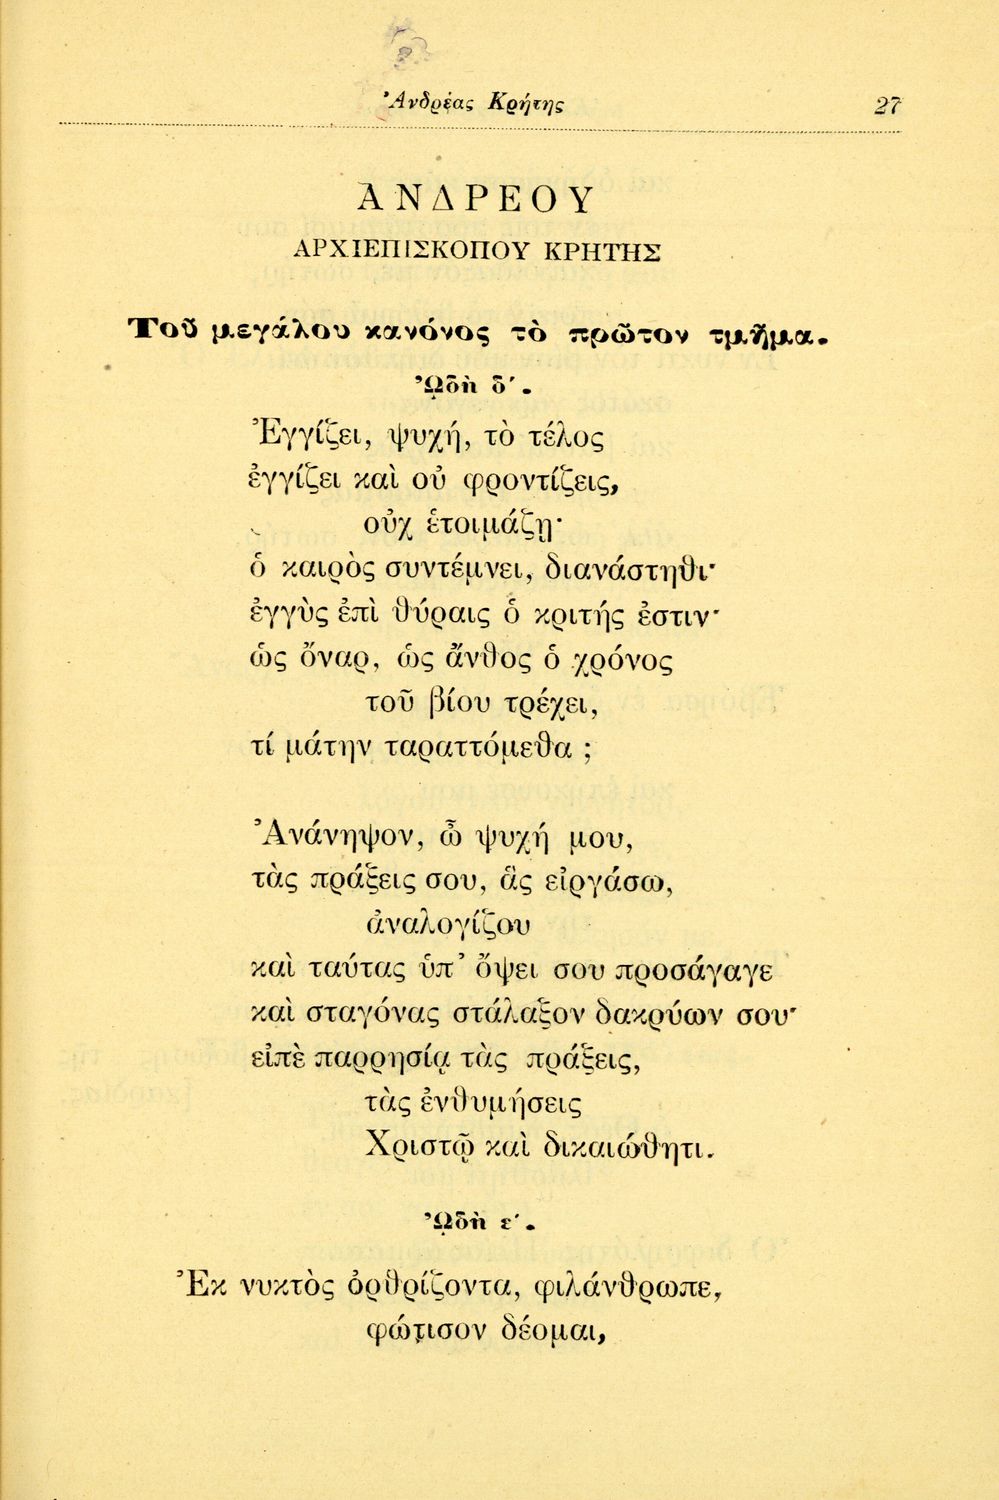 Ἀνδρέας Κρήτης 27
ΑΝΔΡΕΟΥ
ΑΡΧΙΕΠΙΣΚΟΠΟΥ ΚΡΗΤΗΣ
Τοῦ μεγάλου κανόνος τὸ πρῶτον τμῆμα.
ᾨδὴ δ΄.
Ἐγγίζει, ψυχή, τὸ τέλος
ἐγγίζει καὶ οὐ φροντίζεις,
οὐχ ἑτοιμάζῃ·
ὁ καιρὸς συντέμνει, διανάστηθι·
ἐγγὺς ἐπὶ θύραις ὁ κριτής ἐστιν·
ὡς ὄναρ, ὡς ἄνθος ὁ χρόνος
τοῦ βίου τρέχει,
τί μάτην ταραττόμεθα ;
Ἀνάνηψον, ὦ ψυχή μου,
τὰς πράξεις σου, ἃς εἰργάσω,
ἀναλογίζου
καὶ ταύτας ὑπ᾽ ὄψει σου προσάγαγε
καὶ σταγόνας στάλαξον δακρύων σου·
εἰπὲ παρρησίᾳ τὰς πράξεις,
τὰς ἐνθυμήσεις
Χριστῷ καὶ δικαιώθητι.
ᾨδὴ ε΄.
Ἐκ νυκτὸς ὀρθρίζοντα, φιλάνθρωπε,
φώτισον δέομαι,